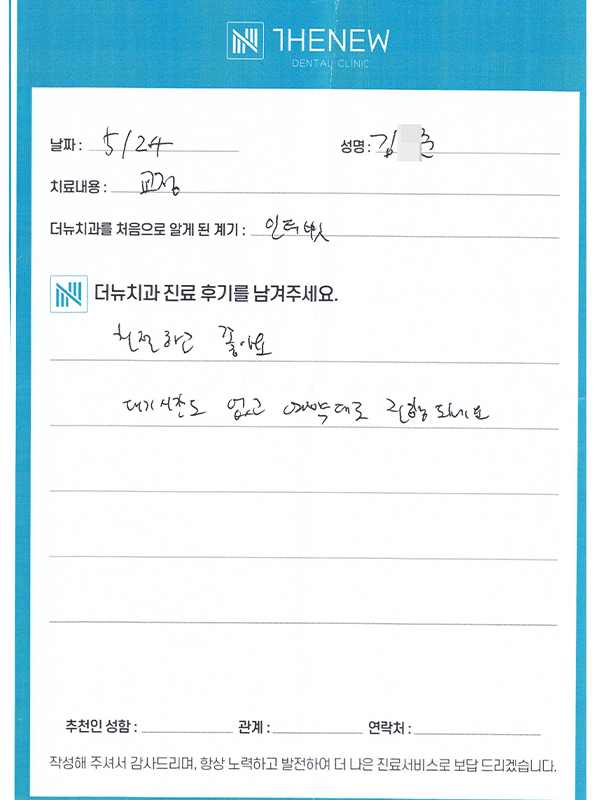 THENEW
DENTAL CLINIC
날짜 : 5/24
성명 : 김 준
치료내용 : 교정
더뉴치과를 처음으로 알게 된 계기 : 인터넷
더뉴치과 진료 후기를 남겨주세요.
친절하고 좋아요
대기시간도 없고 예약대로 진행되네요
추천인 성함 :
관계 :
연락처 :
작성해 주셔서 감사드리며, 항상 노력하고 발전하여 더 나은 진료서비스로 보답 드리겠습니다.